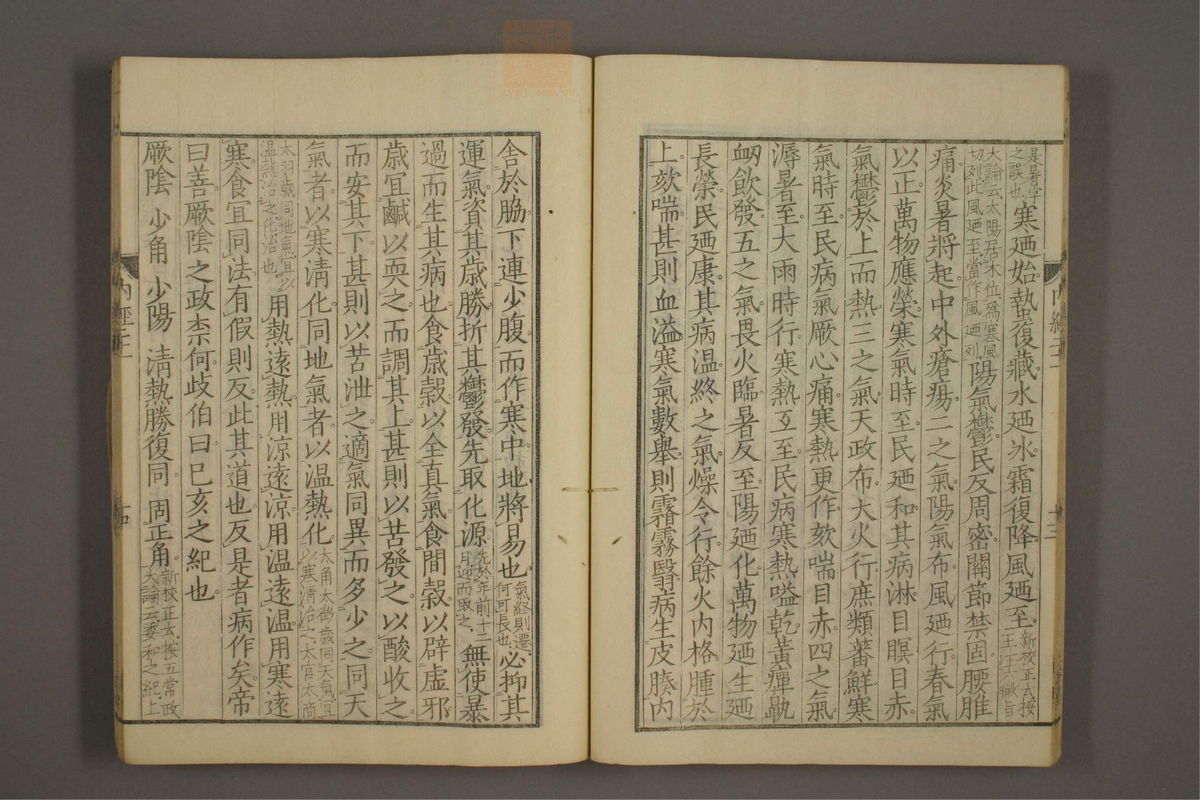 之誤也寒廼始蟄復藏水廼冰霜復降風廼至新校正云按
大論云太陽居木位爲寒風切列此風廼至當作風廼列陽氣鬱民反周密關節禁固腰脽
痛炎暑將起中外瘡瘍二之氣陽氣布風廼行春氣
以正萬物應榮寒氣時至民廼和其病淋目瞑目赤
氣鬱於上而熱三之氣天政布大火行庶類蕃鮮寒
氣時至民病氣厥心痛寒熱更作欬喘目赤四之氣
溽暑至大雨時行寒熱互至民病寒熱嗌乾黃癉鼽
衂飲發五之氣畏火臨暑反至陽廼化萬物廼生廼
長榮民廼康其病温終之氣燥令行餘火内格腫於
上欬喘甚則血溢寒氣數舉則霿霧翳病生皮腠内
舎於脇下連少腹而作寒中地將易也氣終則遷何可長也必抑其
運氣資其歳勝折其鬱發先取化源先於年前十二月迎而取之無使暴
過而生其病也食歳穀以全真氣食間穀以辟虚邪
歳宜鹹以耎之而調其上甚則以苦發之以酸收之
而安其下甚則以苦泄之適氣同異而多少之同天
氣者以寒清化同地氣者以温熱化太角太徵歳同天氣宜以寒清治之太宮太商
太羽歳同地氣宜以温熱治之化治也用熱遠熱用涼遠涼用温遠温用寒遠
寒食宜同法有假則反此其道也反是者病作矣帝
曰善厥陰之政柰何歧伯曰巳亥之紀也
厥陰 少角 少陽 清熱勝復同 同正角新校正云按五常政大論云委和之紀上
内經二十一
十四